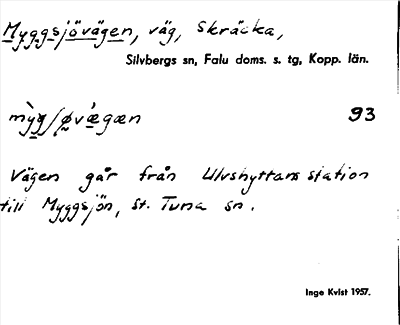 Myggsjövägen, väg, Skräcka,
Silvbergs sn, Falu doms. s. tg, Kopp. län.
93
Vägen går från Ulvshyttans station
till Myggsjön, St. Tuna sn.
Inge Kvist 1957.